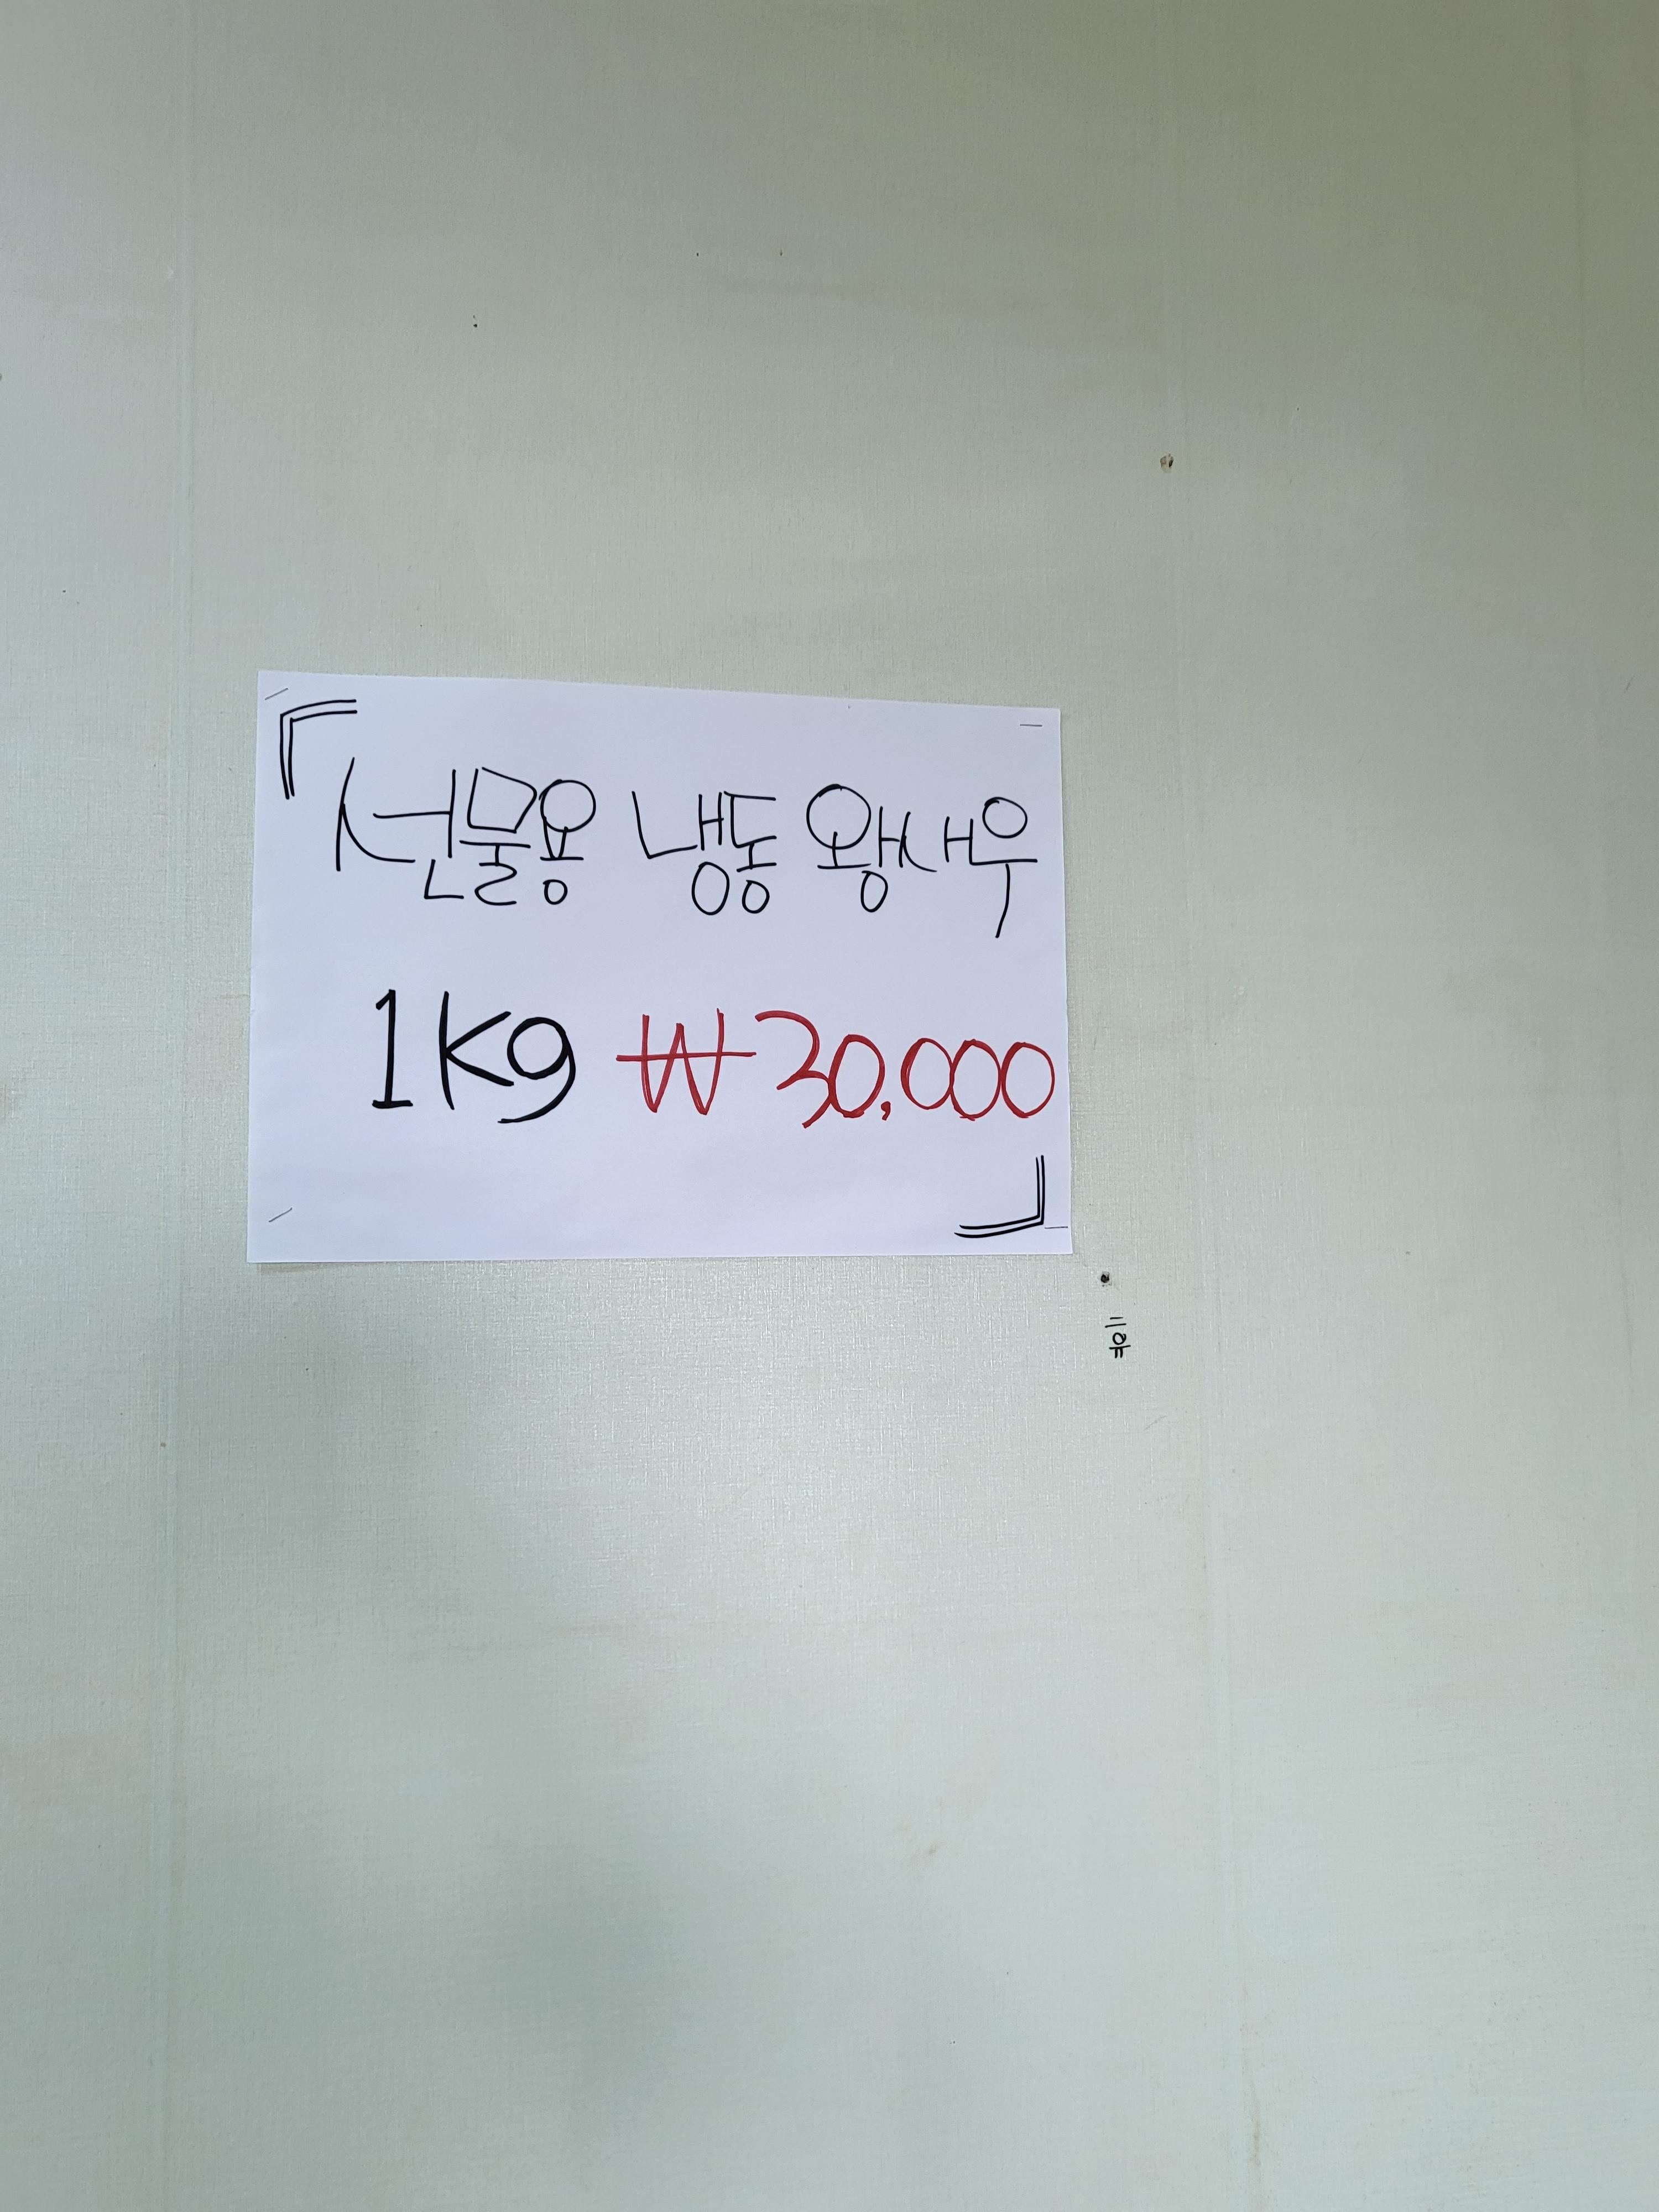 『선물용 냉동 왕새우
1kg ₩30,000』